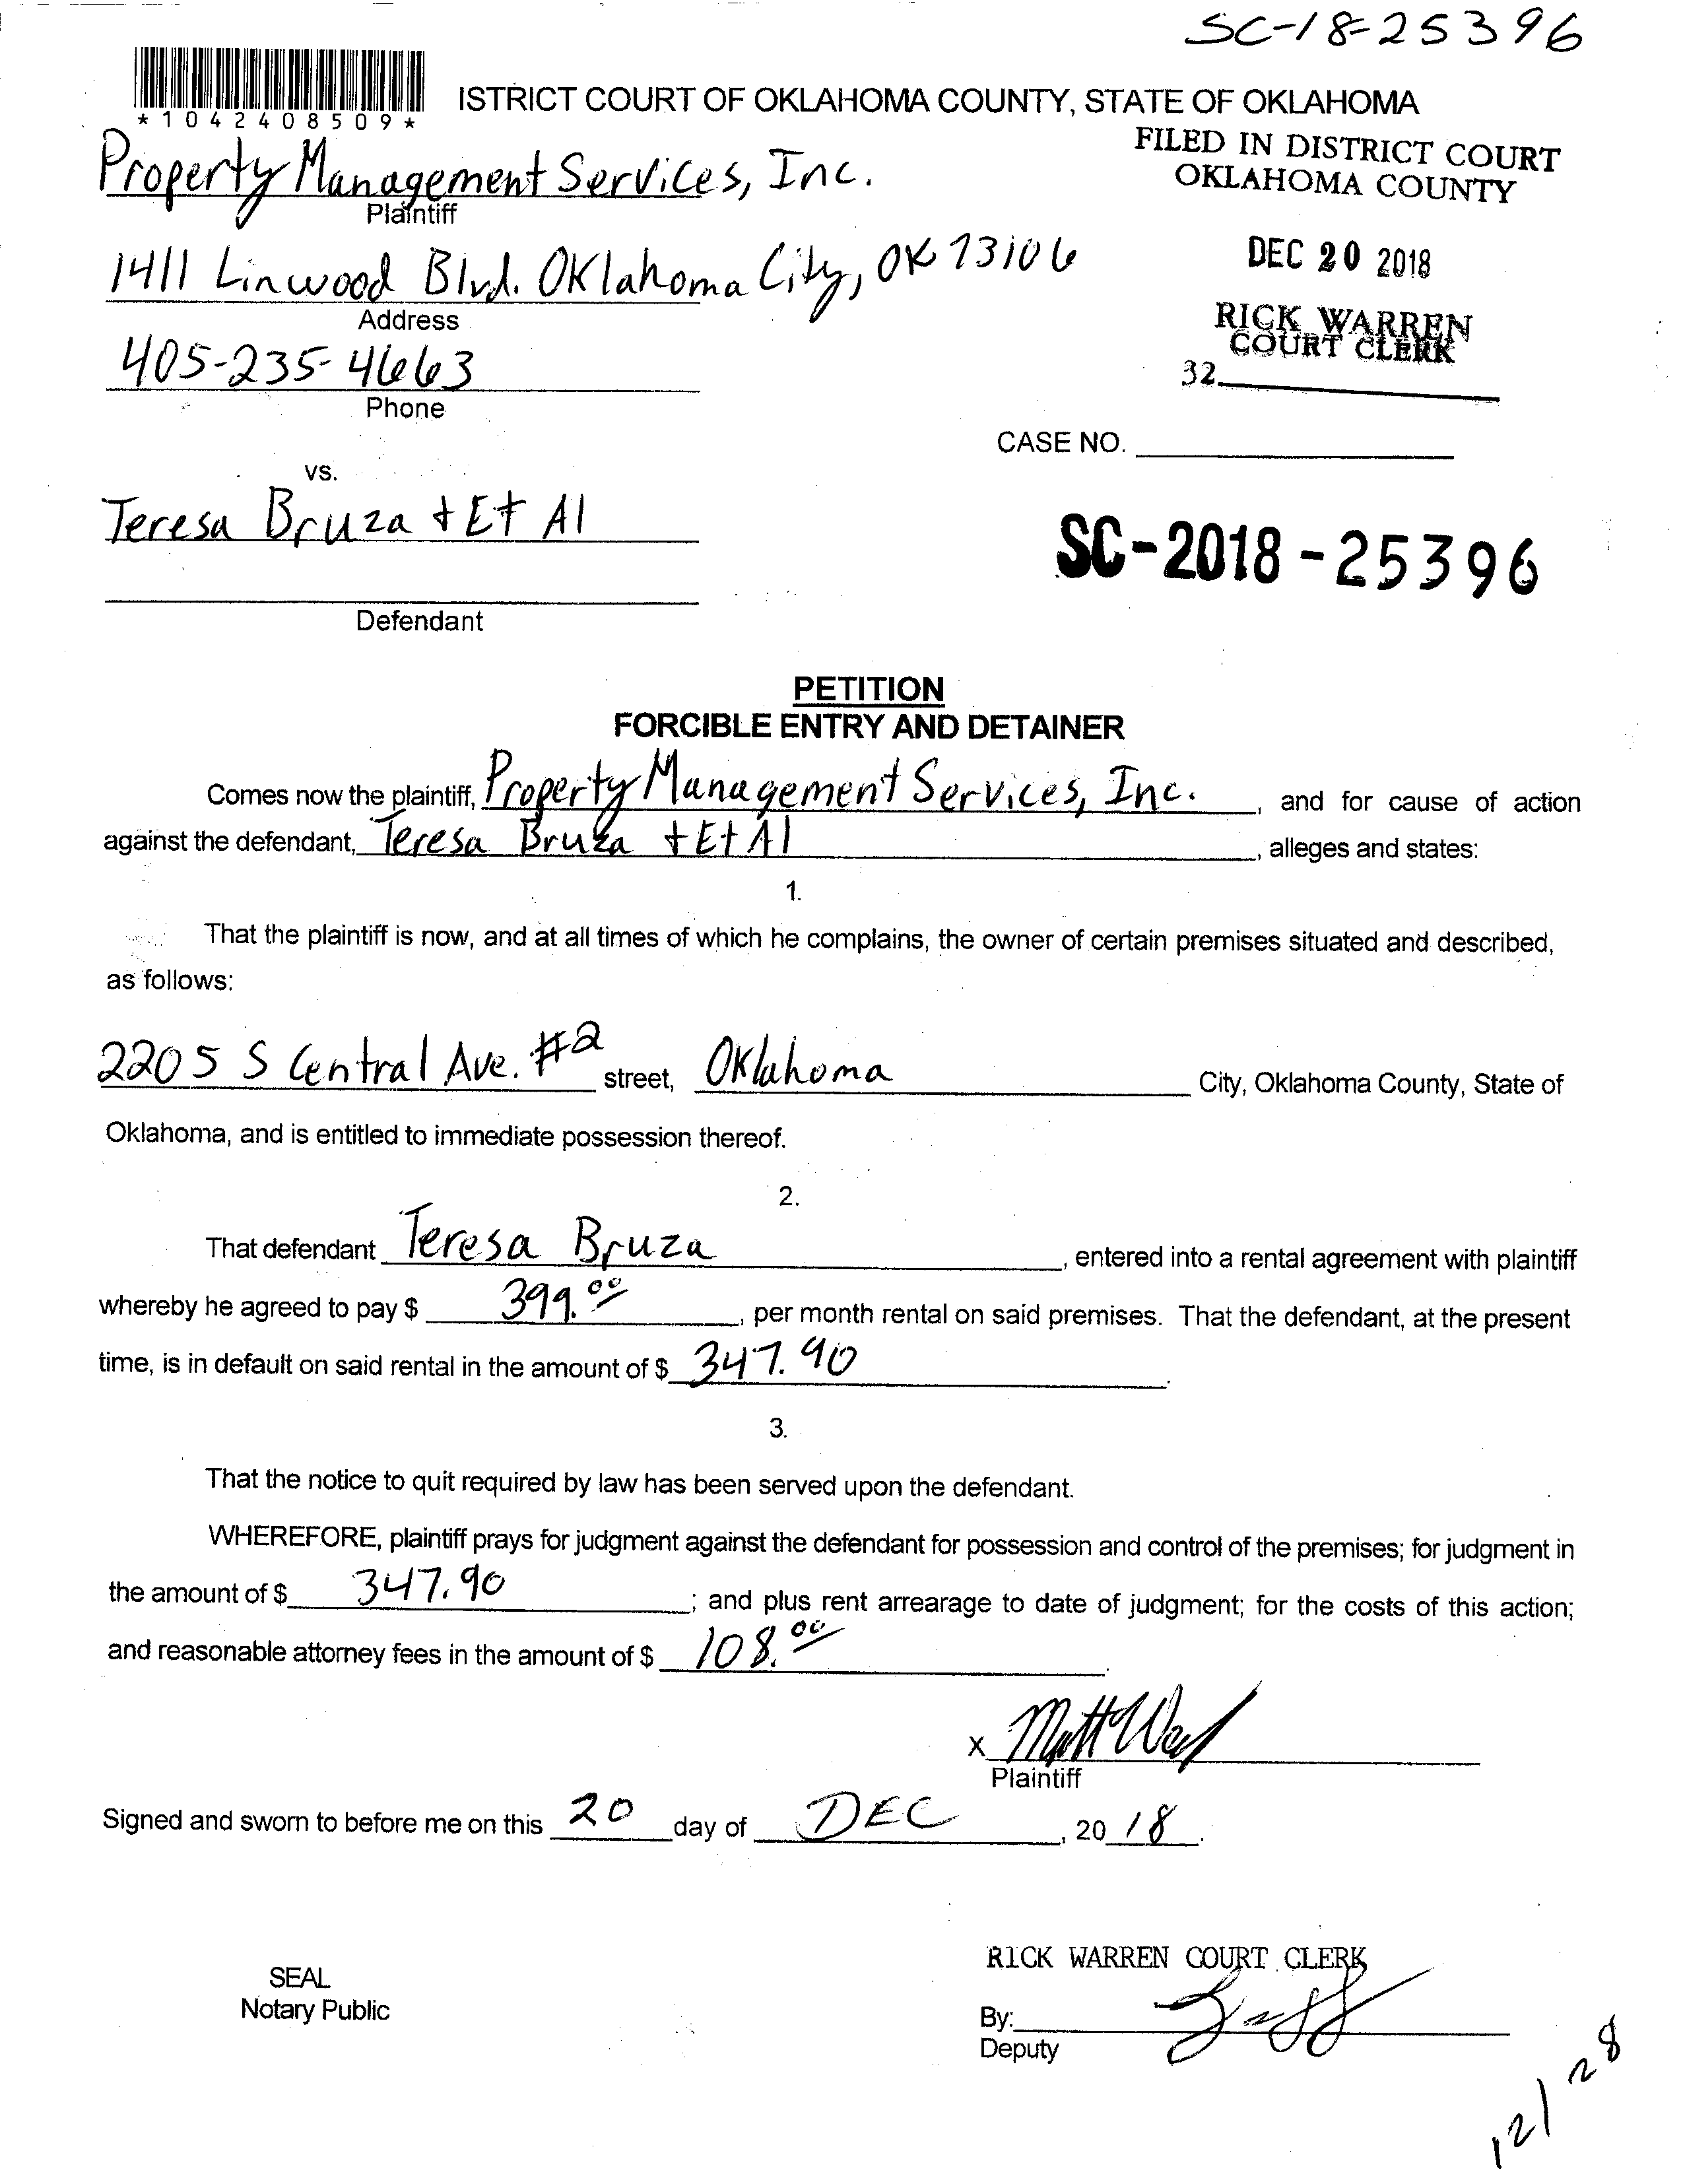 SC-18-25396
*1042408509*
ISTRICT COURT OF OKLAHOMA COUNTY, STATE OF OKLAHOMA
FILED IN DISTRICT COURT
OKLAHOMA COUNTY
Property Management Services, Inc.
Plaintiff
DEC 20 2018
1411 Linwood Blvd. Oklahoma City, OK 73106
Address
RICK WARREN
COURT CLERK
405-235-4663
32
Phone
CASE NO.
vs.
Teresa Bruza + Et Al
SC-2018-25396
Defendant
PETITION
FORCIBLE ENTRY AND DETAINER
Comes now the plaintiff, Property Management Services, Inc., and for cause of action
against the defendant, Teresa Bruza + Et Al, alleges and states:
1.
That the plaintiff is now, and at all times of which he complains, the owner of certain premises situated and described,
as follows:
2205 S Central Ave. #2 street, Oklahoma City, Oklahoma County, State of
Oklahoma, and is entitled to immediate possession thereof.
2.
That defendant Teresa Bruza, entered into a rental agreement with plaintiff
whereby he agreed to pay $ 399.00, per month rental on said premises. That the defendant, at the present
time, is in default on said rental in the amount of $ 347.90.
3.
That the notice to quit required by law has been served upon the defendant.
WHEREFORE, plaintiff prays for judgment against the defendant for possession and control of the premises; for judgment in
the amount of $ 347.90; and plus rent arrearage to date of judgment; for the costs of this action;
and reasonable attorney fees in the amount of $ 108.00.
x
Plaintiff
Signed and sworn to before me on this 20 day of DEC, 2018.
RICK WARREN COURT CLERK
SEAL
Notary Public
By:
Deputy
12/28